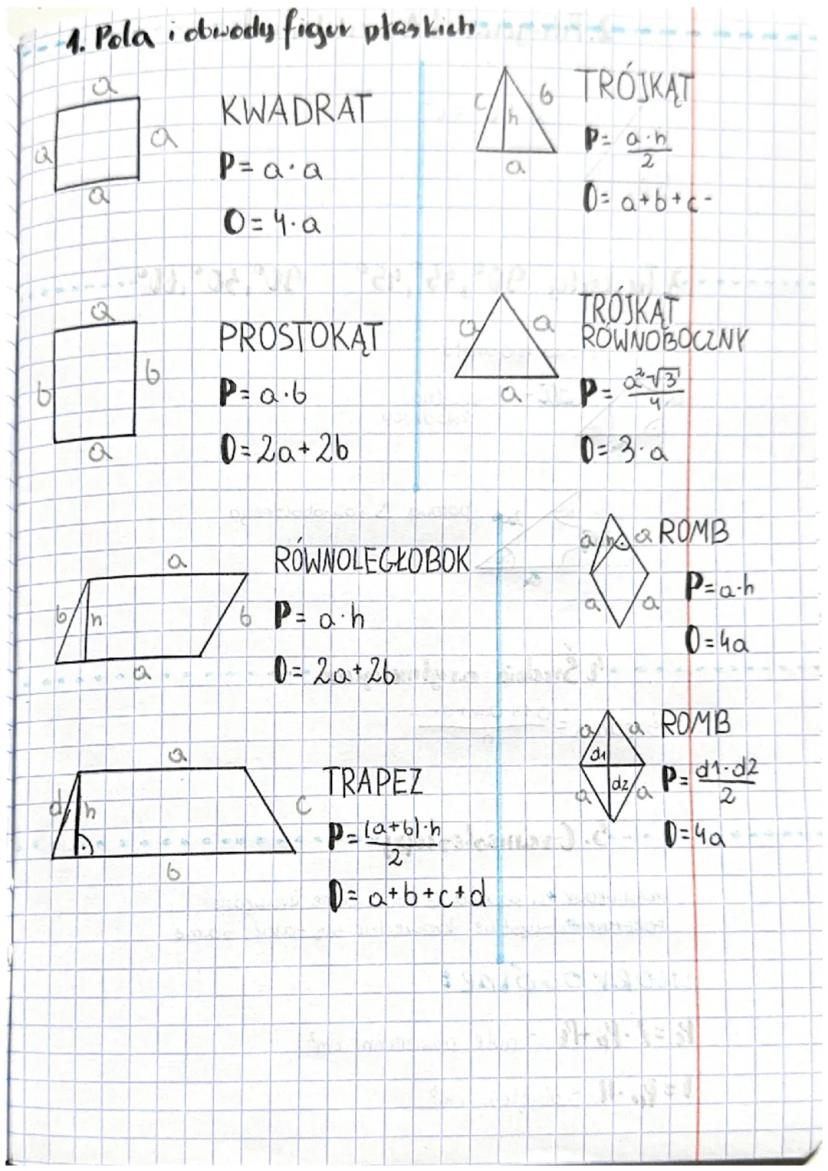 1. Pola i obwody figur płaskich
a
a
a
a
KWADRAT
P = a · a
O = 4 · a
c
b
h
a
TRÓJKĄT
P = a·h / 2
O = a+b+c
a
b
b
a
PROSTOKĄT
P = a · b
O = 2a + 2b
a
a
a
TRÓJKĄT
RÓWNOBOCZNY
P = a²√3 / 4
O = 3 · a
a
b
h
b
a
RÓWNOLEGŁOBOK
P = a · h
O = 2a + 2b
a
h
a
a
a
ROMB
P = a·h
O = 4a
a
d
h
c
b
TRAPEZ
P = (a+b)·h / 2
O = a+b+c+d
a
a
d1
d2
a
a
ROMB
P = d1·d2 / 2
O = 4a